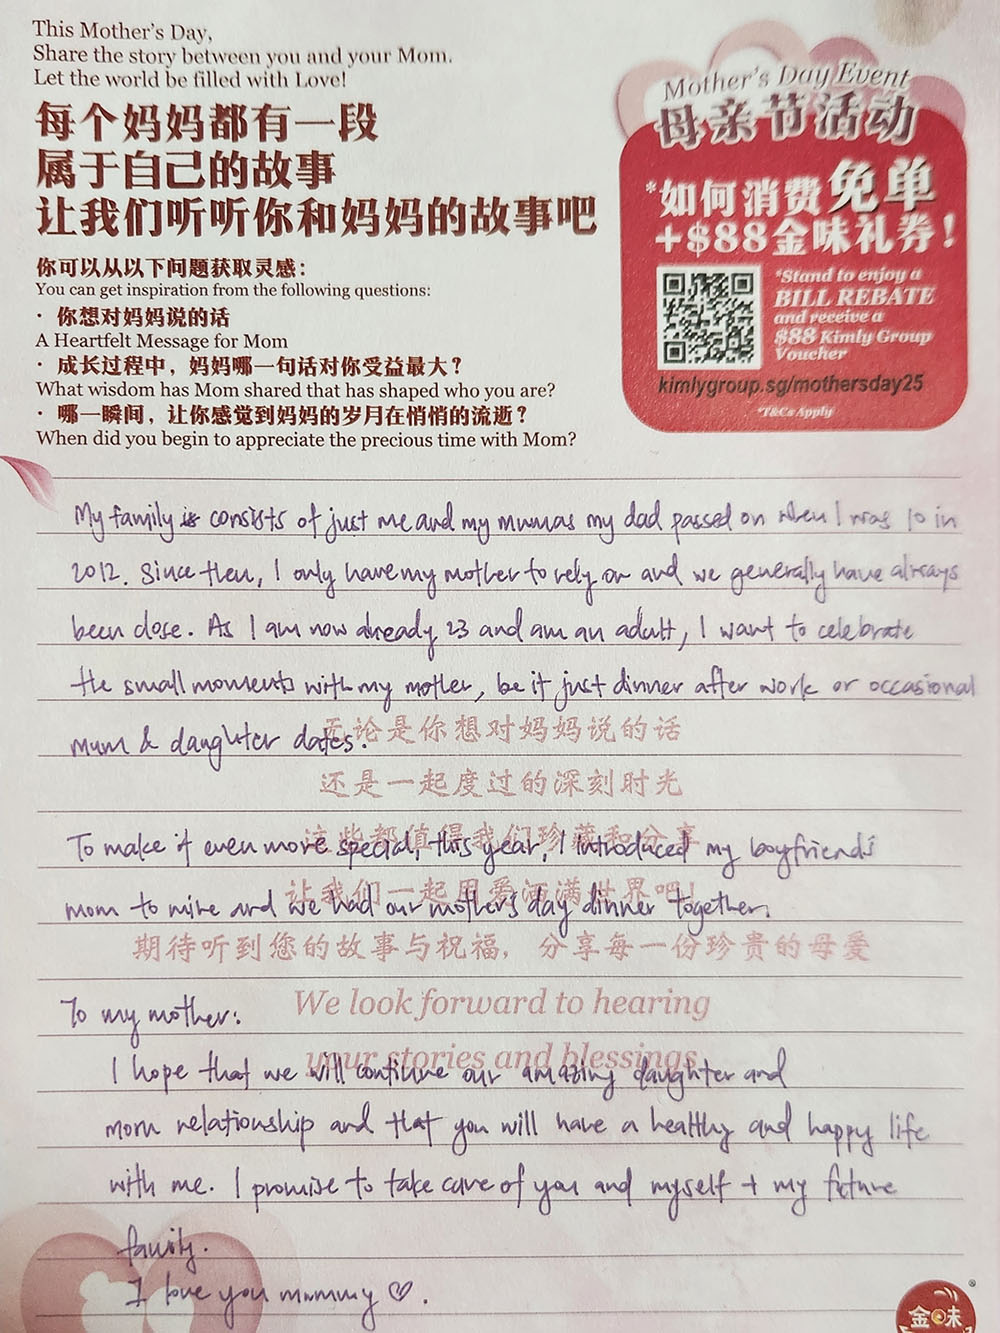 This Mother's Day,
Share the story between you and your Mom.
Let the world be filled with Love!
每个妈妈都有一段
属于自己的故事
让我们听听你和妈妈的故事吧
你可以从以下问题获取灵感：
You can get inspiration from the following questions:
· 你想对妈妈说的话
A Heartfelt Message for Mom
· 成长过程中，妈妈哪一句话对你受益最大？
What wisdom has Mom shared that has shaped who you are?
· 哪一瞬间，让你感觉到妈妈的岁月在悄悄的流逝？
When did you begin to appreciate the precious time with Mom?
Mother's Day Event
母亲节活动
*如何消费免单
+$88金味礼券！
*Stand to enjoy a
BILL REBATE
and receive a
$88 Kimly Group
Voucher
kimlygroup.sg/mothersday25
*T&Cs Apply
My family is consists of just me and my mum as my dad passed on when I was 10 in
2012. Since then, I only have my mother to rely on and we generally have always
been close. As I am now already 23 and am an adult, I want to celebrate
the small moments with my mother, be it just dinner after work or occasional
无论是你想对妈妈说的话
mum & daughter dates.
还是一起度过的深刻时光
这些都值得我们珍藏和分享
To make it even more special, this year, I introduced my boyfriend's
让我们一起用爱洒满世界吧！
mom to mine and we had our mother's day dinner together.
期待听到您的故事与祝福，分享每一份珍贵的母爱
We look forward to hearing
To my mother:
your stories and blessings
I hope that we will continue our amazing daughter and
mom relationship and that you will have a healthy and happy life
with me. I promise to take care of you and myself + my future
family.
I love you mummy ♡.
金味